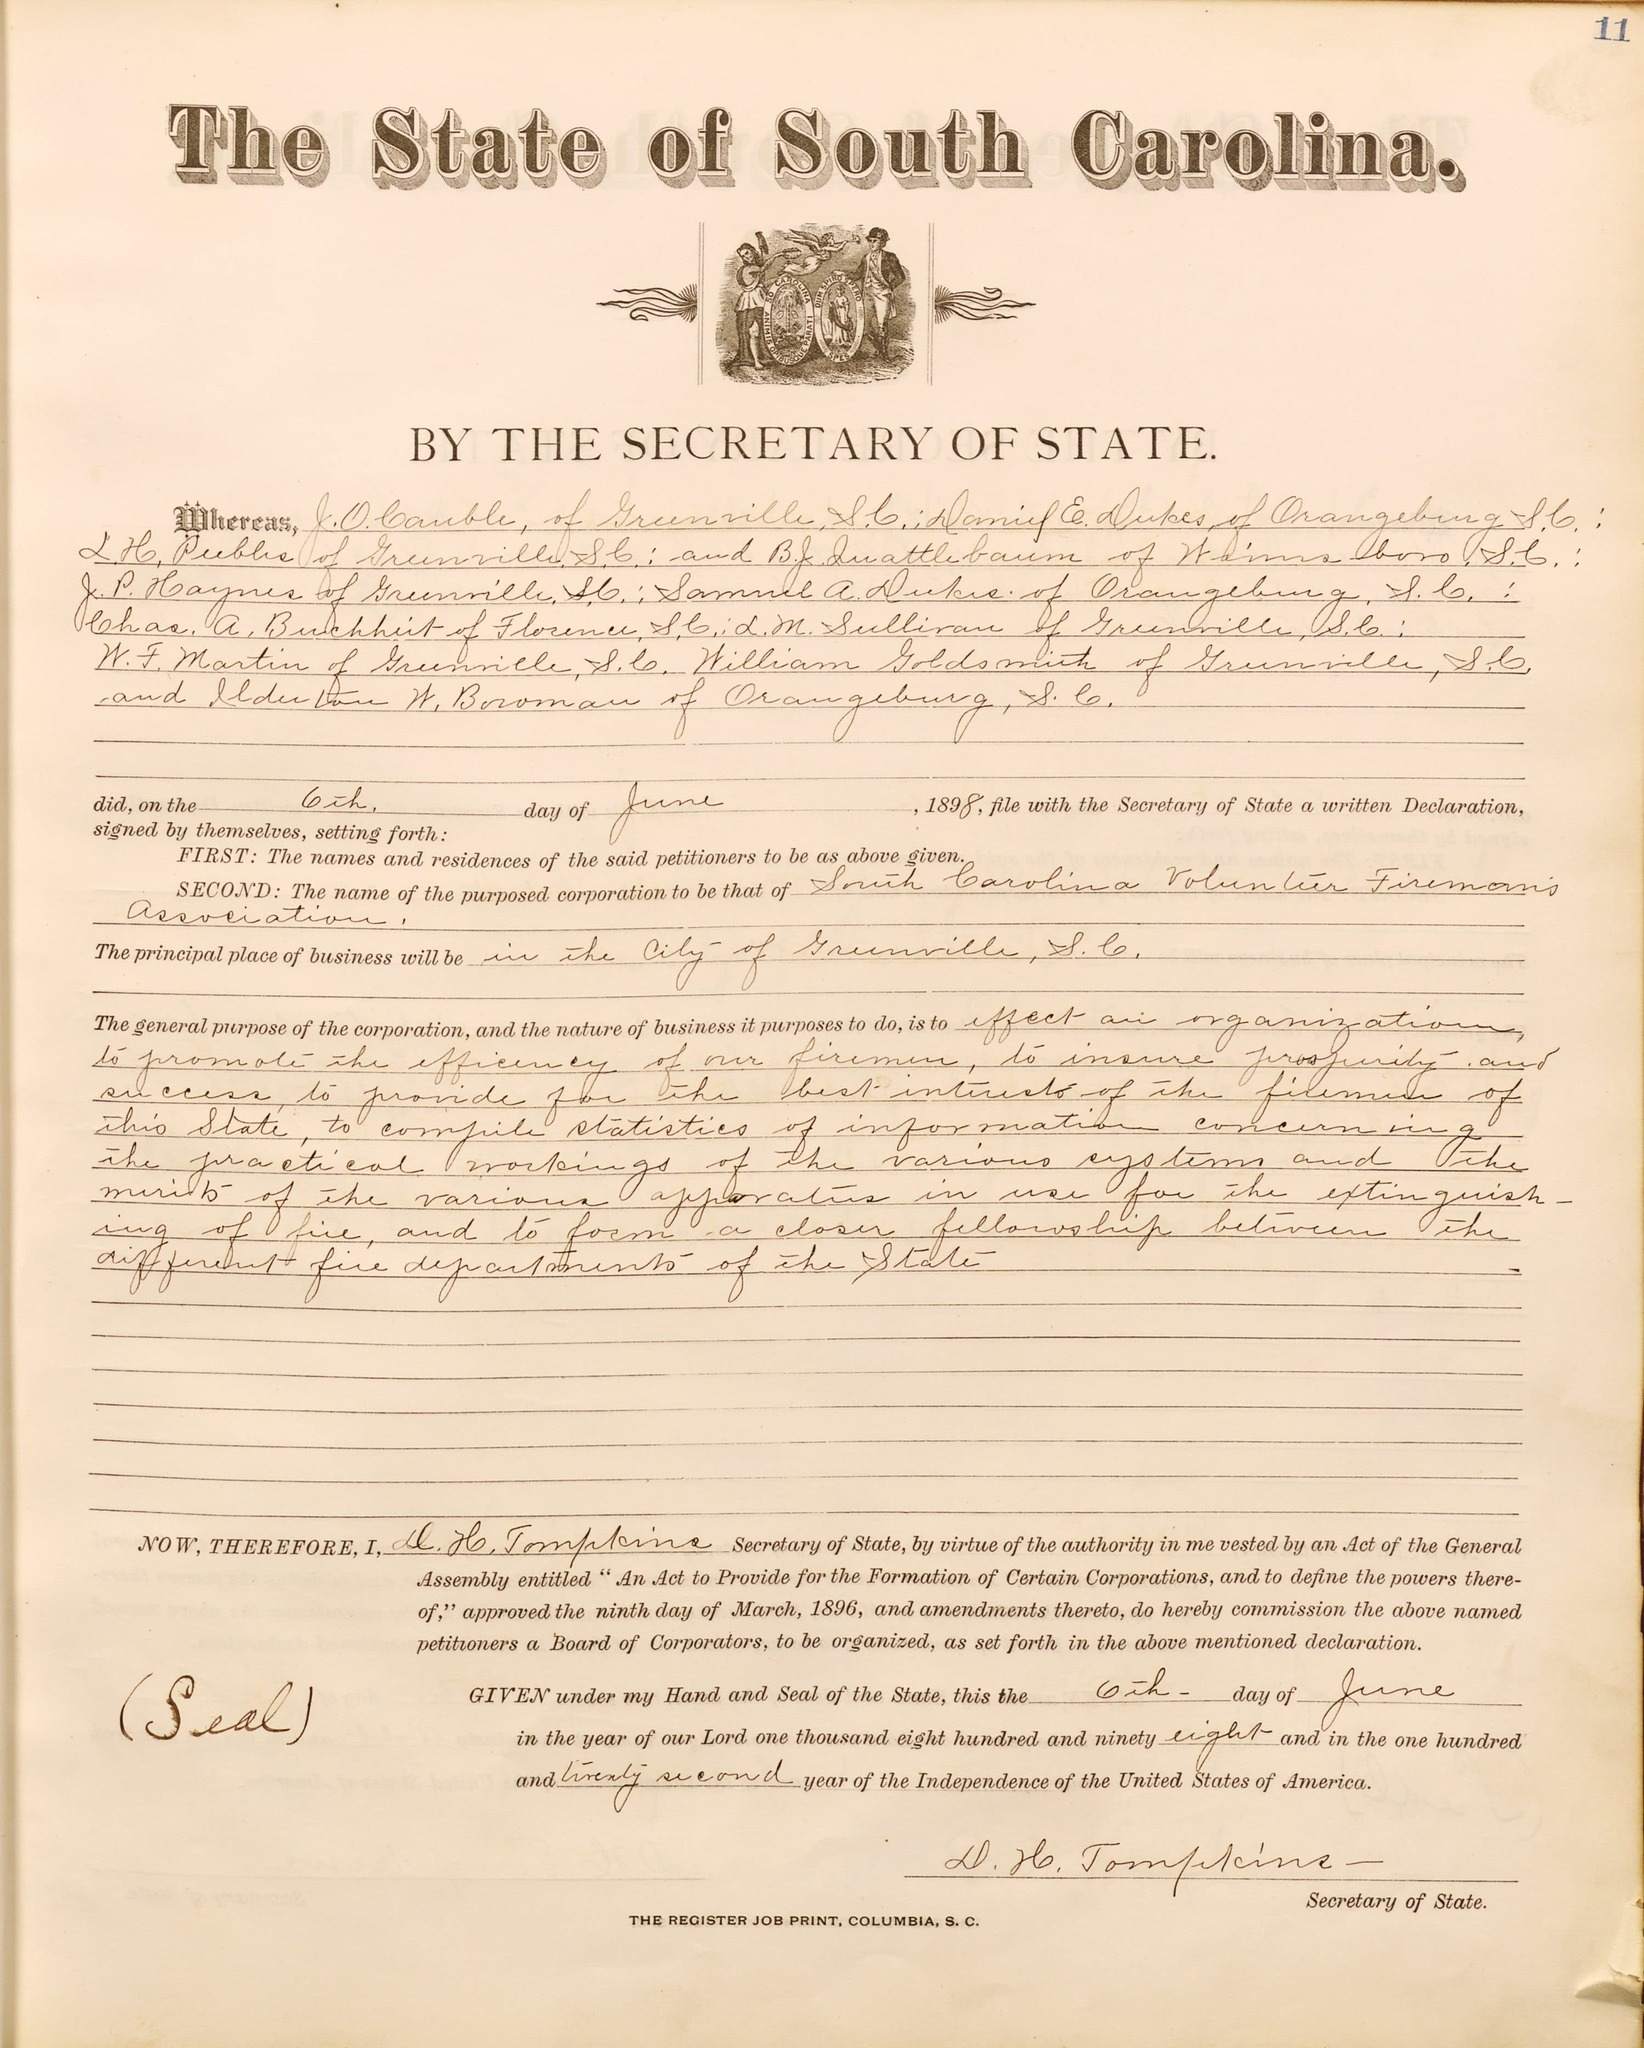 11
The State of South Carolina.
BY THE SECRETARY OF STATE.
Whereas, J. O. Cauble, of Greenville, S.C.; Daniel E. Dukes, of Orangeburg S.C. :
L. H. Peebles of Greenville S.C: and B.J. Quattlebaum of Winnsboro, S.C. :
J. P. Haynes of Greenville, S.C.; Samuel A. Dukes. of Orangeburg, S. C. :
Chas. A. Buchheit of Florence, S,C,; L. M. Sullivan of Greenville, S.C. :
W. F. Martin of Greenville, S.C. William Goldsmith of Greenville, S.C.
and Ilderton W. Bowman of Orangeburg, S. C.
did, on the 6th. day of June , 1898, file with the Secretary of State a written Declaration,
signed by themselves, setting forth:
FIRST: The names and residences of the said petitioners to be as above given.
SECOND: The name of the purposed corporation to be that of South Carolina Volunteer Fireman's
Association.
The principal place of business will be in the City of Greenville, S. C.
The general purpose of the corporation, and the nature of business it purposes to do, is to effect an organization,
to promote the efficency of our firemen, to insure prosperity and
success, to provide for the best interests of the firemen of
this State, to compile statistics of information concerning
the practical workings of the various systems and the
merits of the various apparatus in use for the extinguish-
ing of fire, and to form a closer fellowship between the
different fire departments of the State
NOW, THEREFORE, I, D. H. Tompkins Secretary of State, by virtue of the authority in me vested by an Act of the General
Assembly entitled "An Act to Provide for the Formation of Certain Corporations, and to define the powers there-
of," approved the ninth day of March, 1896, and amendments thereto, do hereby commission the above named
petitioners a Board of Corporators, to be organized, as set forth in the above mentioned declaration.
(Seal)
GIVEN under my Hand and Seal of the State, this the 6th - day of June
in the year of our Lord one thousand eight hundred and ninety eight and in the one hundred
and twenty second year of the Independence of the United States of America.
D. H. Tompkins -
Secretary of State.
THE REGISTER JOB PRINT, COLUMBIA, S. C.